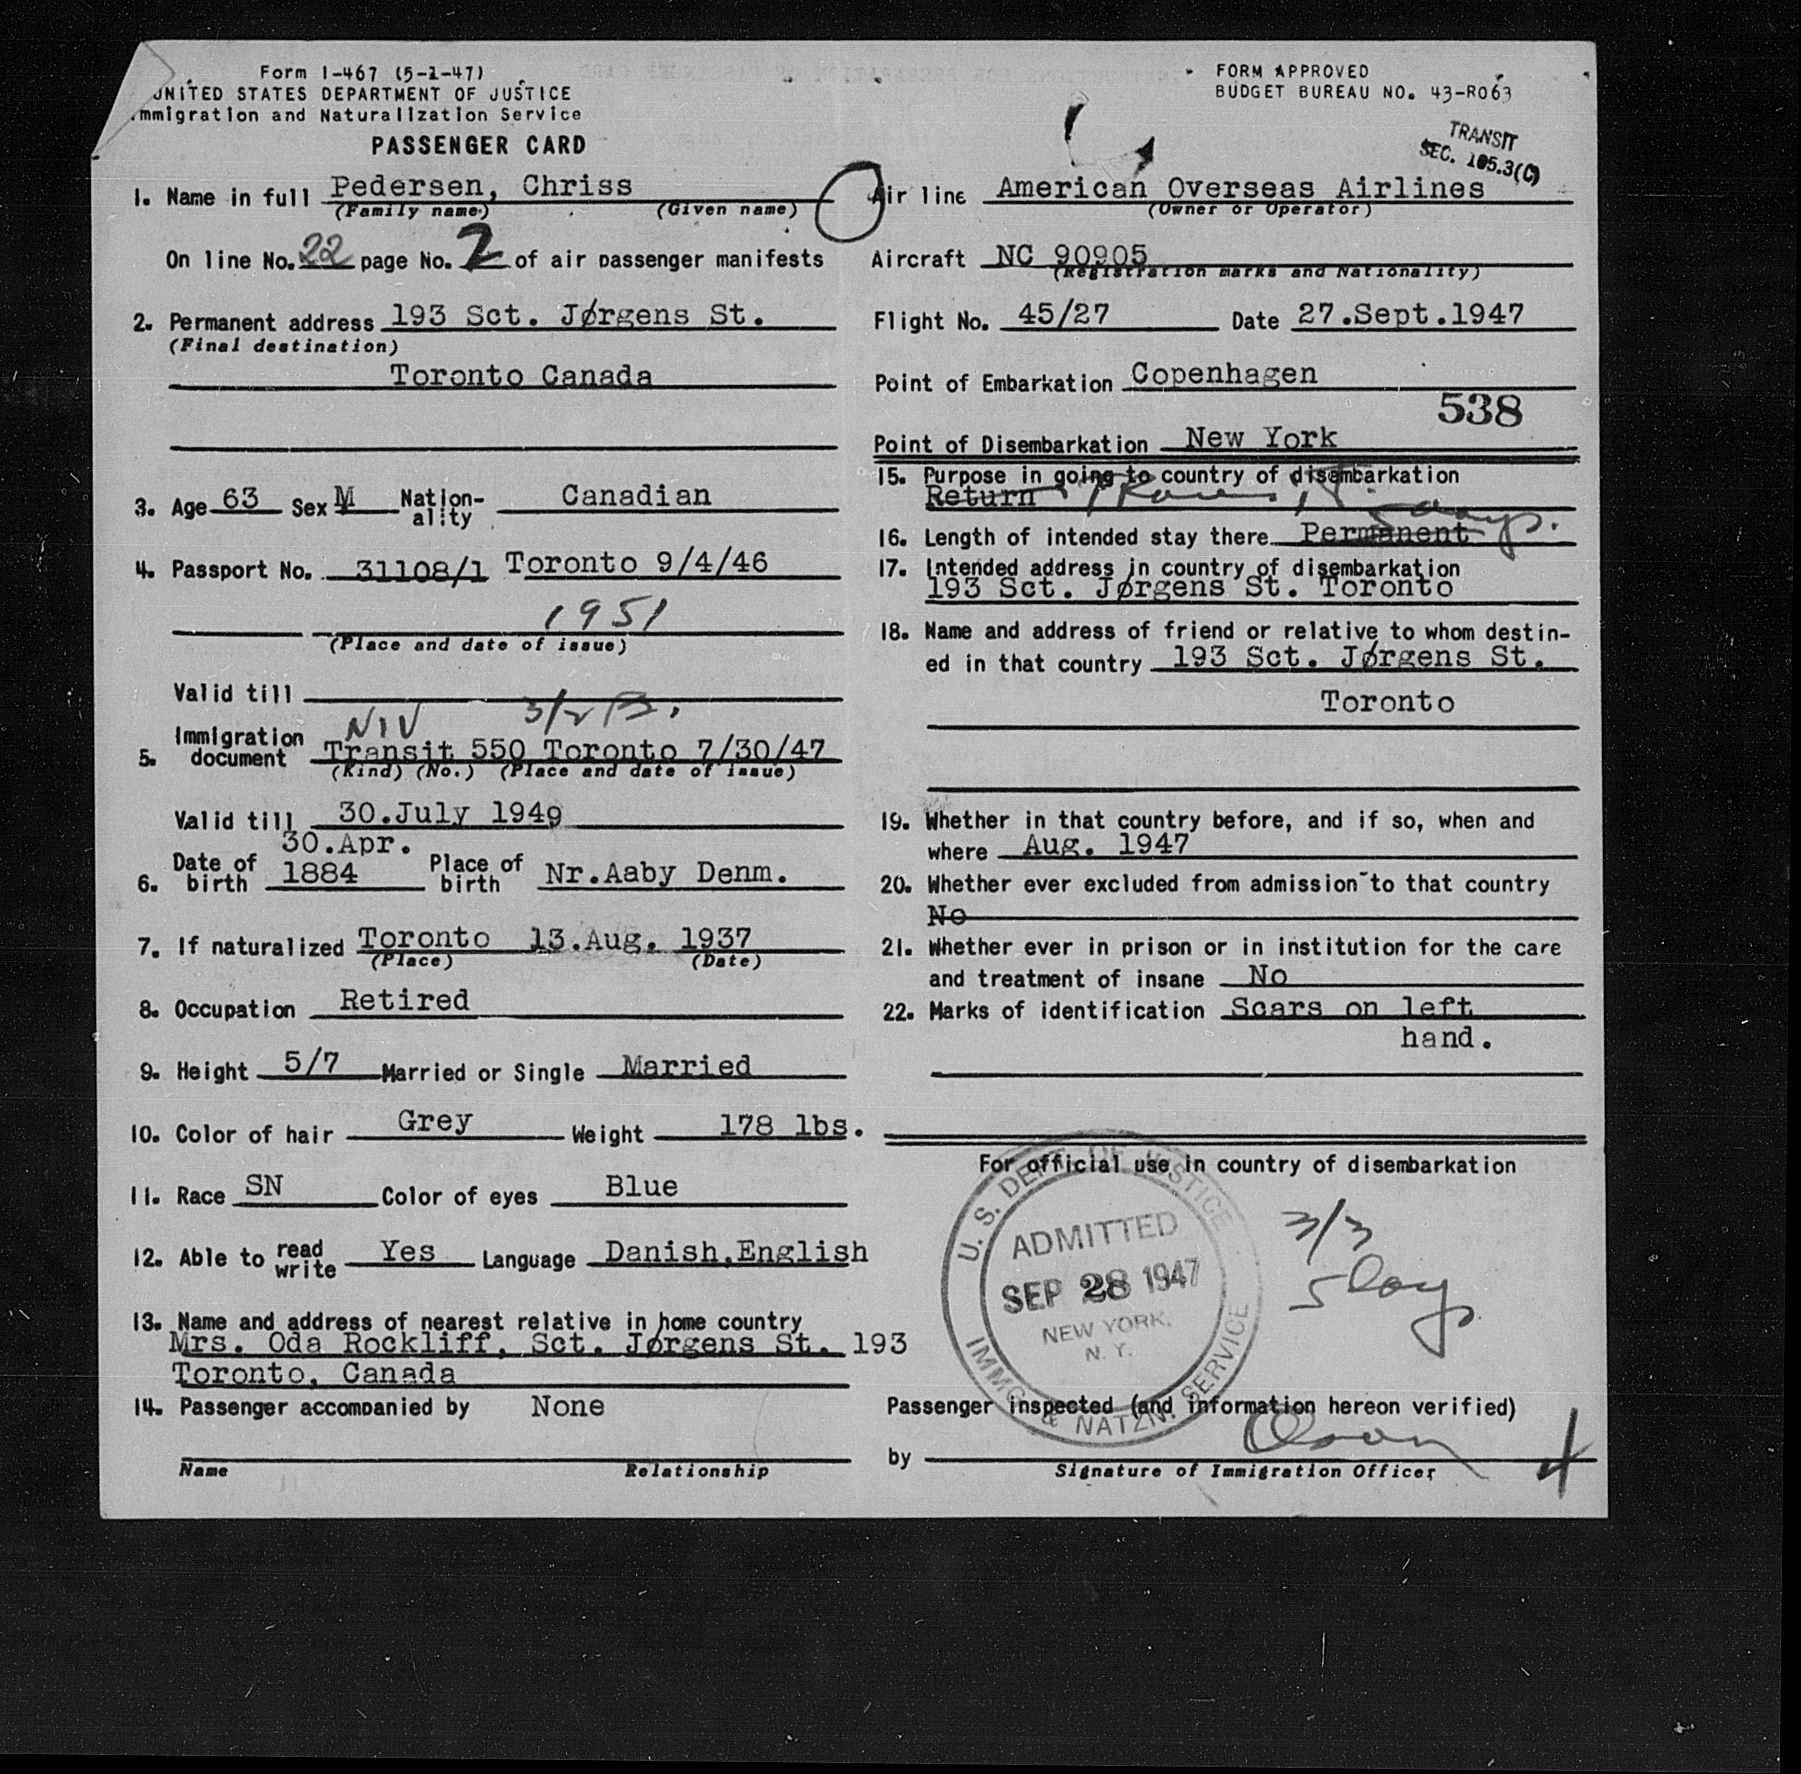 Form I-467 (5-1-47)
UNITED STATES DEPARTMENT OF JUSTICE
Immigration and Naturalization Service
PASSENGER CARD
FORM APPROVED
BUDGET BUREAU NO. 43-R063
TRANSIT
SEC. 105.3(C)
1. Name in full Pedersen, Chriss
(Family name) (Given name)
On line No. 22 page No. 2 of air passenger manifests
2. Permanent address 193 Sct. Jørgens St.
(Final destination)
Toronto Canada
3. Age 63 Sex M Nation-ality Canadian
4. Passport No. 31108/1 Toronto 9/4/46
1951
(Place and date of issue)
Valid till
NIV 3/2 B.
5. Immigration document Transit 550 Toronto 7/30/47
(Kind) (No.) (Place and date of issue)
Valid till 30.July 1949
30.Apr.
6. Date of birth 1884 Place of birth Nr.Aaby Denm.
7. If naturalized Toronto 13.Aug. 1937
(Place) (Date)
8. Occupation Retired
9. Height 5/7 Married or Single Married
10. Color of hair Grey Weight 178 lbs.
11. Race SN Color of eyes Blue
12. Able to read write Yes Language Danish,English
13. Name and address of nearest relative in home country
Mrs. Oda Rockliff, Sct. Jørgens St. 193
Toronto, Canada
14. Passenger accompanied by None
Name Relationship
Air line American Overseas Airlines
(Owner or Operator)
Aircraft NC 90905
(Registration marks and Nationality)
Flight No. 45/27 Date 27.Sept.1947
Point of Embarkation Copenhagen
538
Point of Disembarkation New York
15. Purpose in going to country of disembarkation
Return
5 days.
16. Length of intended stay there Permanent
17. Intended address in country of disembarkation
193 Sct. Jørgens St. Toronto
18. Name and address of friend or relative to whom destin-
ed in that country 193 Sct. Jørgens St.
Toronto
19. Whether in that country before, and if so, when and
where Aug. 1947
20. Whether ever excluded from admission to that country
No
21. Whether ever in prison or in institution for the care
and treatment of insane No
22. Marks of identification Scars on left
hand.
For official use in country of disembarkation
U. S. DEPT. OF JUSTICE
ADMITTED
SEP 28 1947
NEW YORK,
N. Y.
IMMG. & NATZN. SERVICE
3/3
5 days
Passenger inspected (and information hereon verified)
by Olson
Signature of Immigration Officer